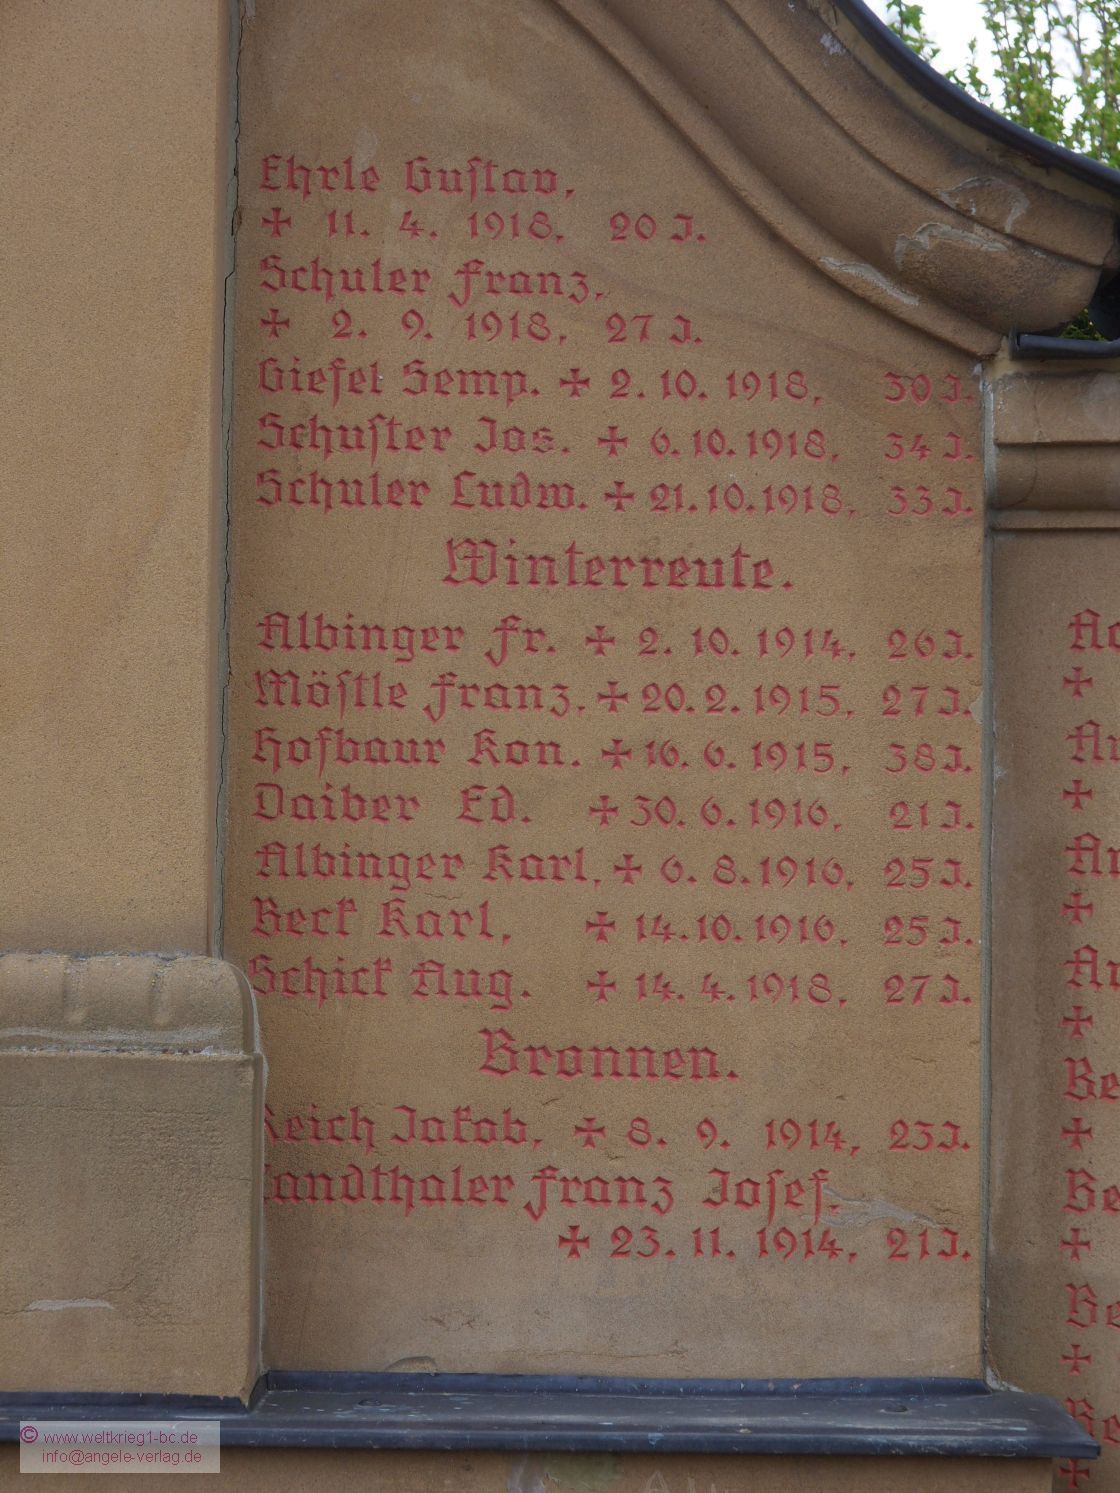 Ehrle Gustav,
✠ 11. 4. 1918. 20 J.
Schuler Franz,
✠ 2. 9. 1918, 27 J.
Giesel Semp. ✠ 2. 10. 1918, 30 J.
Schuster Jos. ✠ 6. 10. 1918, 34 J.
Schuler Ludw. ✠ 21. 10. 1918, 33 J.
Winterreute.
Albinger Fr. ✠ 2. 10. 1914, 26 J.
Möstle Franz, ✠ 20. 2. 1915, 27 J.
Hofbaur Kon. ✠ 16. 6. 1915, 38 J.
Daiber Ed. ✠ 30. 6. 1916, 21 J.
Albinger Karl, ✠ 6. 8. 1916, 25 J.
Beck Karl, ✠ 14. 10. 1916, 25 J.
Schick Aug. ✠ 14. 4. 1918, 27 J.
Bronnen.
Reich Jakob, ✠ 8. 9. 1914, 23 J.
Landthaler Franz Josef,
✠ 23. 11. 1914, 21 J.
© www.weltkrieg1-bc.de
info@angele-verlag.de